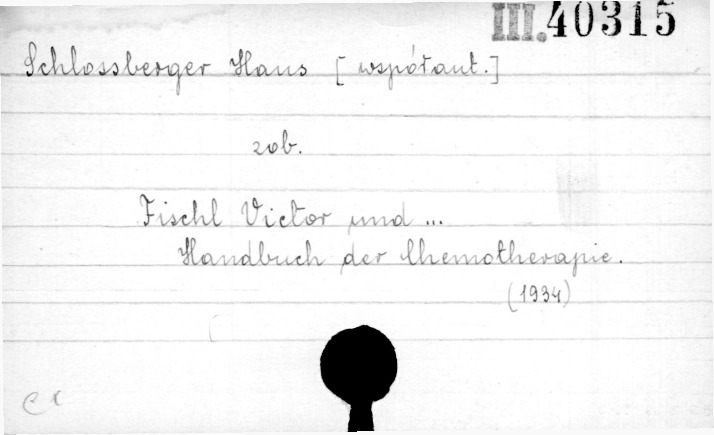 III.40315
Schlossberger Hans [współaut.]
zob.
Fischl Victor und ...
Handbuch der Chemotherapie.
(1934)